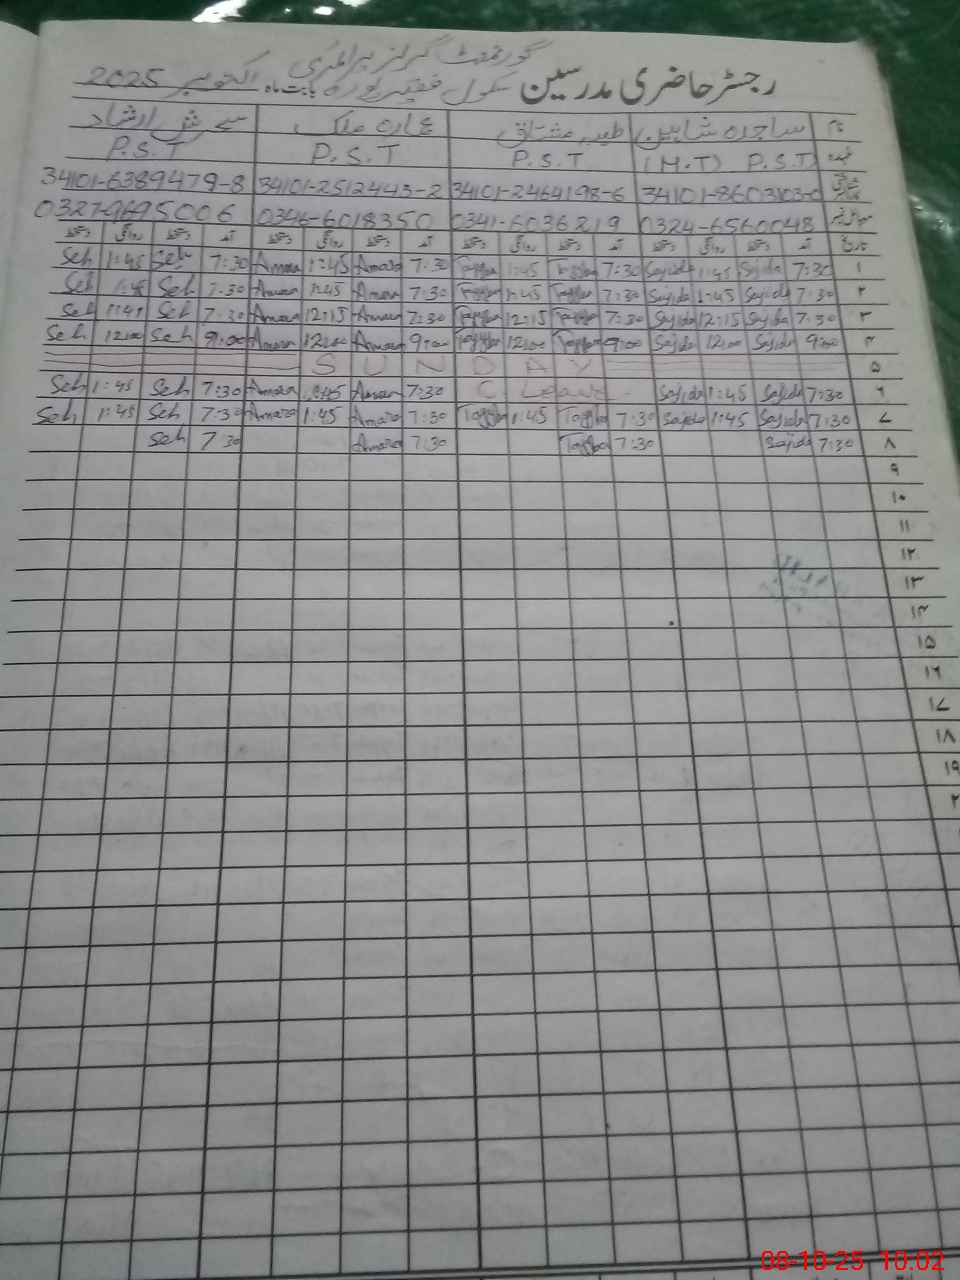 گورنمنٹ گرلز پرائمری
رجسٹر حاضری مدرسین سکول فقیر پورہ بابت ماہ اکتوبر 2025
نام ساجدہ شاہین طیبہ مشتاق عمارہ ملک سحرش ارشاد
عہدہ (H.T) P.S.T P.S.T P.S.T P.S.T
شناختی کارڈ نمبر 34101-8603103-0 34101-2464198-6 34101-2512443-2 34101-6389479-8
موبائل نمبر 0324-6560048 0341-6036219 0346-6018350 0327-9695006
تاریخ آمد دستخط روانگی دستخط آمد دستخط روانگی دستخط آمد دستخط روانگی دستخط آمد دستخط روانگی دستخط
۱ 7:30 Sajida 1:45 Sajida 7:30 Tayyba 1:45 Tayyba 7:30 Amara 1:45 Amara 7:30 Seh 1:45 Seh
۲ 7:30 Sajida 1:45 Sajida 7:30 Tayyba 1:45 Tayyba 7:30 Amara 1:45 Amara 7:30 Seh 1:45 Seh
۳ 7:30 Sajida 12:15 Sajida 7:30 Tayyba 12:15 Tayyba 7:30 Amara 12:15 Amara 7:30 Seh Seh
۴ 9:00 Sajida 12:00 Sajida 9:00 Tayyba 12:00 Tayyba 9:00 Amara 12:00 Amara 9:00 Seh 12:00 Seh
۵ SUNDAY
۶ 7:30 Sajida 1:45 Sajida C Leave 7:30 Amara 1:45 Amara 7:30 Seh 1:45 Seh
۷ 7:30 Sajida 1:45 Sajida 7:30 Tayyba 1:45 Tayyba 7:30 Amara 1:45 Amara 7:30 Seh 1:45 Seh
۸ 7:30 Sajida 7:30 Tayyba 7:30 Amara 7:30 Seh
۹
۱۰
۱۱
۱۲
۱۳
۱۴
۱۵
۱۶
۱۷
۱۸
۱۹
08-10-25 10:02